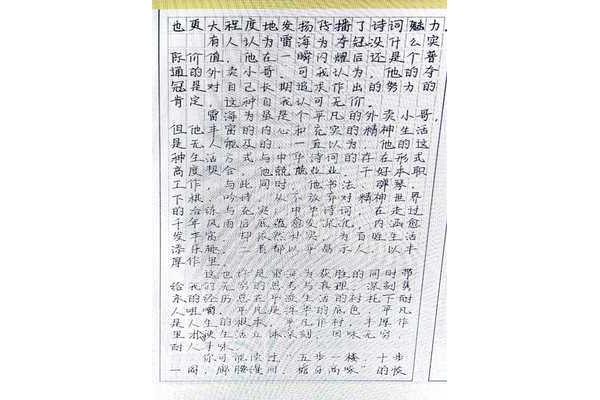 也更大程度地发扬传播了诗词魅力
有人认为雷海为夺冠没什么实
际价值,他在一瞬闪耀后还是个普
通的外卖小哥,可我认为,他的夺
冠是对自己长期追求作出的努力的
肯定,这种自我认可无价。
雷海为虽是个平凡的外卖小哥,
但他丰富的内心和充实的精神生活
是无人能及的,一直以为,他的这
种生活方式与中华诗词的存在形式
高度契合,他兢兢业业,干好本职
工作,与此同时,他书法、弹琴、
下棋、吟诗,从不放弃对精神世界
的冶炼与充实;中华诗词,在走过
千年风雨后底蕴愈发深化,内涵愈
发丰富,却依然朴实,为百姓生活
添乐趣,二者都以平易示人,以丰
厚作里。
这也许是雷海为获胜的同时带
给我们无穷的思考与真理,深刻隽
永的经历总在平淡生活的衬托下耐
人咀嚼,平凡是浮华的底色,平凡
是人生的根本,平凡作衬,丰厚作
里才使生活立体深刻,回味无穷,
耐人寻味。
你可能读过"五步一楼,十步
一阁,廊腰缦回,檐牙高啄"的恢